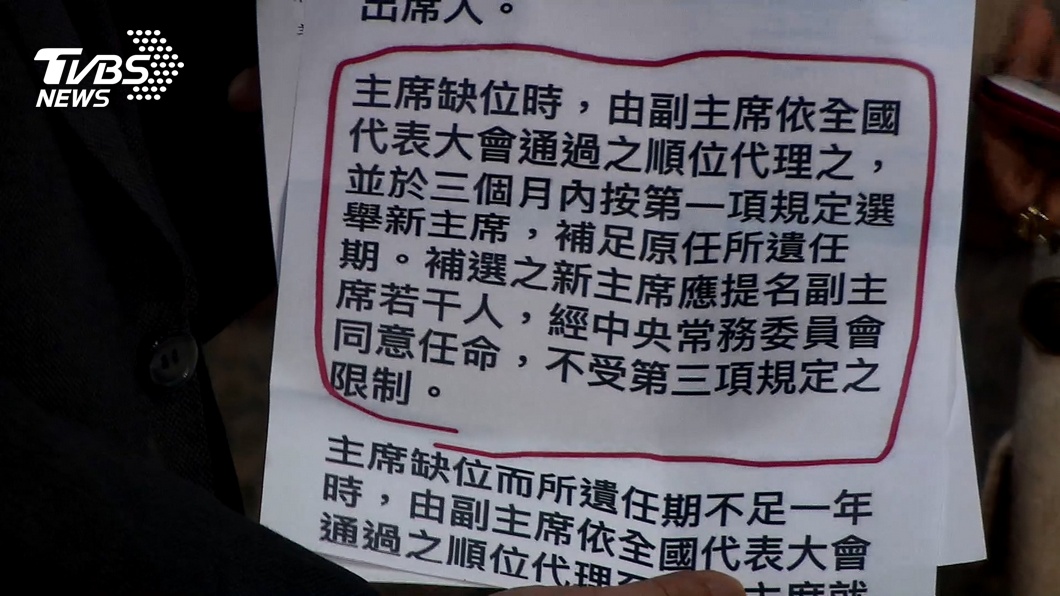 TVBS
NEWS
出席人。
主席缺位時，由副主席依全國
代表大會通過之順位代理之，
並於三個月內按第一項規定選
舉新主席，補足原任所遺任
期。補選之新主席應提名副主
席若干人，經中央常務委員會
同意任命，不受第三項規定之
限制。
主席缺位而所遺任期不足一年
時，由副主席依全國代表大會
通過之順位代理至
主席就